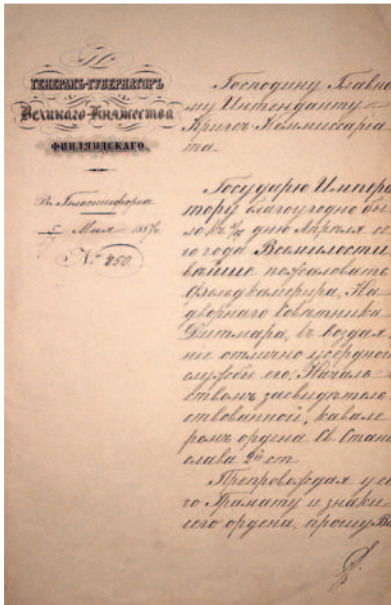 ГЕНЕРАЛЪ-ГУБЕРНАТОРЪ
Великаго Княжества
ФИНЛЯНДСКАГО.
Въ Гельсингфорсѣ
Мая
№ 250.
Господину Главно
му Интенданту
Кригсъ-Коммисарiа
та.
Государю Импера
тору благоугодно бы
ло въ день Апрѣля се
го года Всемилости
вѣйше пожаловать
На
дворнаго Совѣтника
Дитмара, въ воздая
нiе отлично усердной
службы его, Началь
ствомъ засвидѣтель
ствованной, кавале
ромъ ордена Св. Стани
слава 2й ст.
Препровождая у се
го Грамату и знаки
сего ордена, прошу В